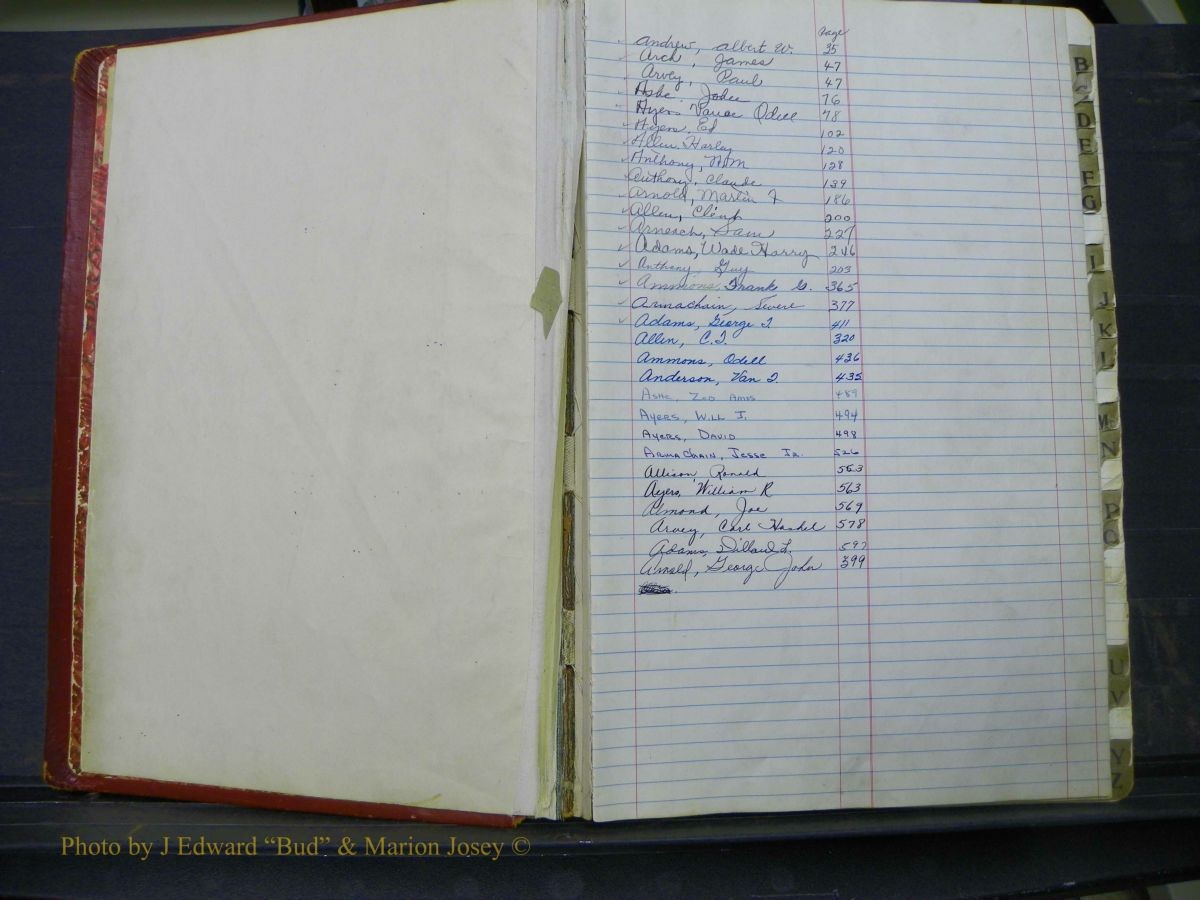 Page
Andrew, Albert W. 35
Arch, James 47
Arvey, Paul 47
Ashe 76
Ayers Odell 78
Ayers, Ed 102
Allen Harley 120
Anthony, 128
Anthony, Claude 139
Arnold, Martin F 186
Allen, 200
Arneach, Sam 227
Adams, Wade Harry 246
Anthony, Guy 203
Ammons, Frank G. 365
Armachain, Severe 377
Adams, George T 411
Allen, C.T. 320
Ammons, Odell 436
Anderson, Van 435
Ashe, Zeb Amos 489
Ayers, Will J. 494
Ayers, David 498
ArmaChain, Jesse Jr. 526
Allison, Ronald 553
Ayers, William R 563
Almond, Joe 569
Arvey, Carl Haskel 578
Adams, Dillard L. 597
Arnold, George John 399
B
C
D
E
F
G
I
J
K
L
M
N
P
Q
U
V
Y
Z
Photo by J Edward “Bud” & Marion Josey ©